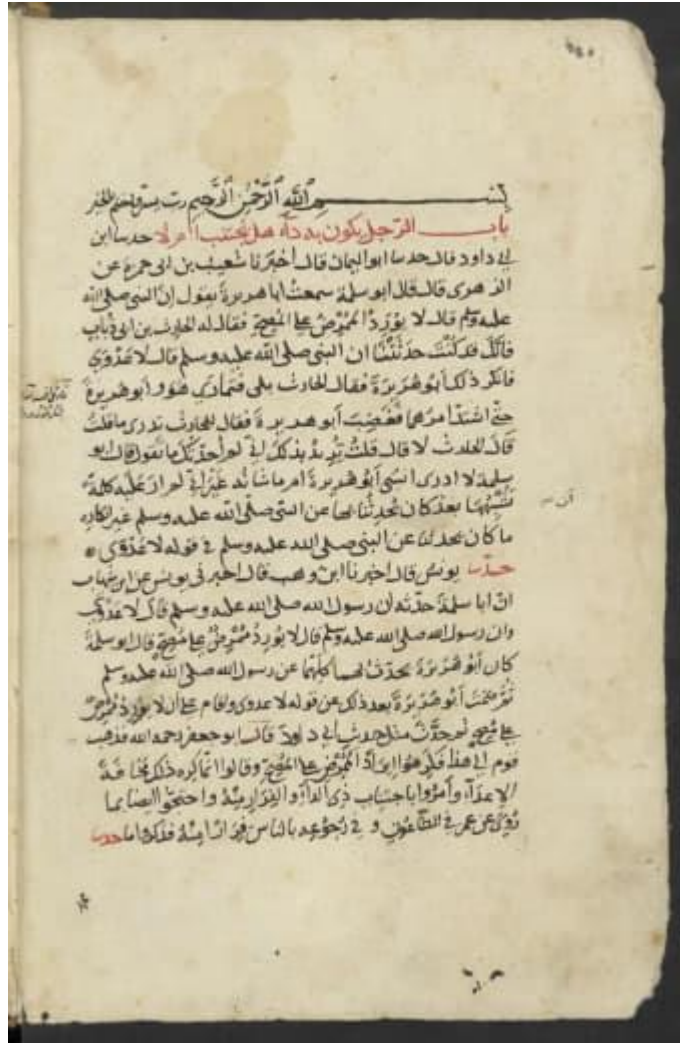 بسم الله الرحمن الرحيم رب يسر واختم بالخير
باب الرجل يكون به داء هل يجتنب أم لا حدثنا ابن
أبي داود قال حدثنا أبو اليمان قال أخبرنا شعيب بن أبي حمزة عن
الزهري قال قال أبو سلمة سمعت أبا هريرة يقول إن النبي صلى الله
عليه وسلم قال لا يورد الممرض على المصح فقال له الحارث بن أبي ذباب
فإنك قد كنت حدثتنا أن النبي صلى الله عليه وسلم قال لا عدوى
فأنكر ذلك أبو هريرة فقال الحارث بلى فتمارى هو وأبو هريرة
حتى اشتد أمرهما فغضب أبو هريرة فقال للحارث تدري ما قلت
قال الحارث لا قال قلت تريد بذلك إني لم أحدثك ما تقول قال أبو
سلمة لا أدري أنسي أبو هريرة أم ما شأنه غير أني لم أر عليه كلمة
نسيها بعد كان يحدثنا بها عن النبي صلى الله عليه وسلم غير إنكاره
ما كان يحدثنا عن النبي صلى الله عليه وسلم في قوله لا عدوى
حدثنا يونس قال أخبرنا ابن وهب قال أخبرني يونس عن ابن شهاب
أن أبا سلمة حدثه أن رسول الله صلى الله عليه وسلم قال لا عدوى
وأن رسول الله صلى الله عليه وسلم قال لا يورد ممرض على مصح قال أبو سلمة
كان أبو هريرة يحدث بهما كلتيهما عن رسول الله صلى الله عليه وسلم
ثم صمت أبو هريرة بعد ذلك عن قوله لا عدوى وأقام على أن لا يورد ممرض
على مصح ثم حدث مثل حديث ابن أبي داود قال أبو جعفر رحمه الله فذهب
قوم إلى هذا فكرهوا إيراد الممرض على المصح وقالوا إنما كره ذلك مخافة
الإعداء وأمروا باجتناب ذي الداء والفرار منه واحتجوا أيضا بما
روي عن عمر في الطاعون و في رجوعه بالناس فرارا منه فذكروا ما حدثنا